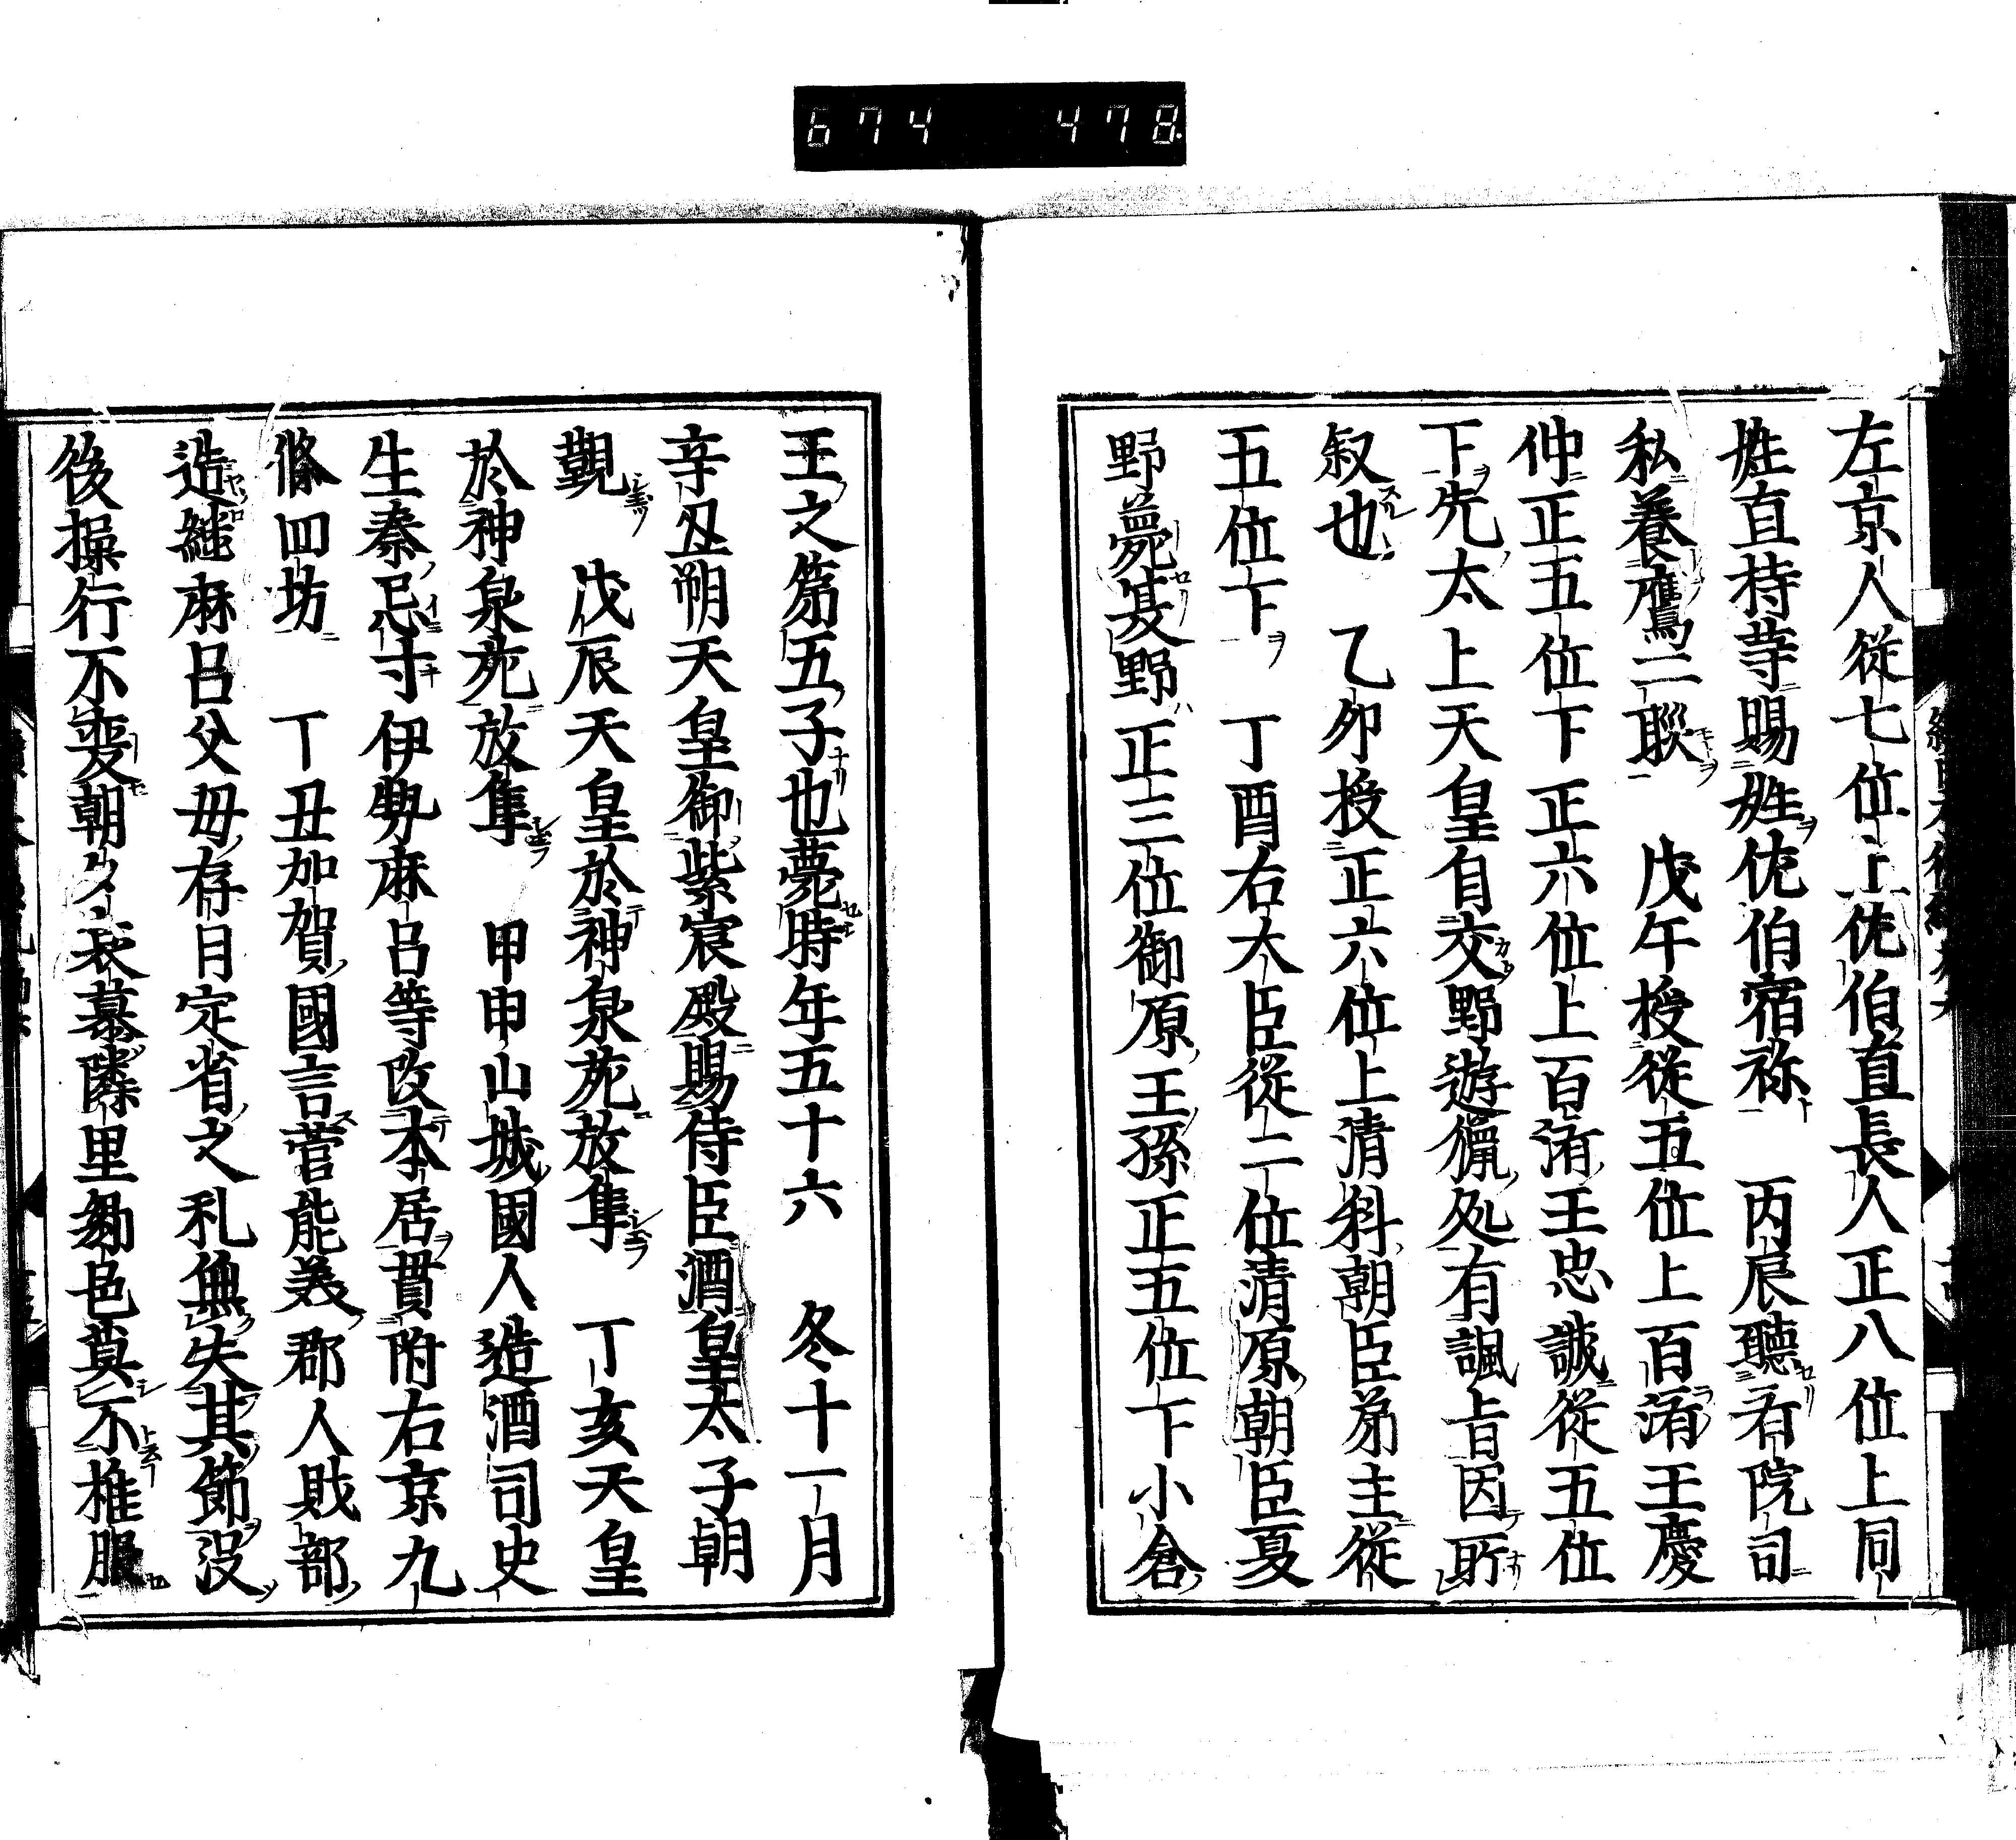 674 478
左京人從七位上佐伯直長人正八位上同
姓直持等賜姓佐伯宿祢 丙辰聽看院司
私養鷹二聯 戊午授從五位上百濟王慶
仲正五位下正六位上百濟王忠誠從五位
下先太上天皇自交野遊獵处有諷旨因所
叙也 乙夘授正六位上清科朝臣弟主從
五位下 丁酉右大臣從二位清原朝臣夏
野薨夏野正三位御原王孫正五位下小倉
王之第五子也薨時年五十六 冬十一月
辛丑朔天皇御紫宸殿賜侍臣酒皇太子朝
覲 戊辰天皇於神泉苑放隼 丁亥天皇
於神泉苑放隼 甲申山城國人造酒司史
生秦忌寸伊勢麻呂等改本居貫附右京九
條四坊 丁丑加賀國言菅能美郡人財部
造継麻呂父母存日定省之礼無失其節沒
後操行不變朝夕哀慕隣里𠛬色莫不推服